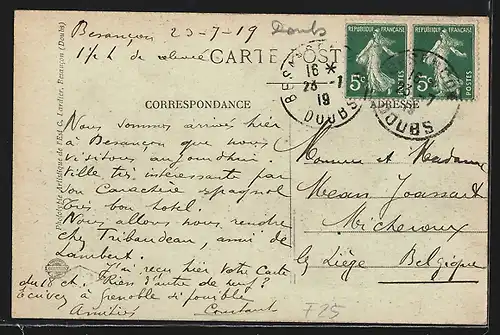 Besançon 23-7-19
Doubs
CARTE POSTALE
RÉPUBLIQUE FRANÇAISE
5c
RÉPUBLIQUE FRANÇAISE
5c
BESANÇON
16 *
23 -7
19
DOUBS
CORRESPONDANCE
ADRESSE
Phototypie Artistique de l'Est C. Lardier, Besançon (Doubs)
Nous sommes arrivés hier
à Besançon que nous
visitons aujourd'hui.
Ville très intéressante par
son Caractère espagnol
Très bon hotel.
Nous allons nous rendre
chez Tribaudeau, ami de
Lambert.
J'ai reçu hier votre Carte
du 18 ct. Rien d'autre de neuf?
écrivez à Grenoble si possible
Amitiés
Constant
Monsieur et Madame
Jean Joassart
Micheroux
lez Liège Belgique
F25